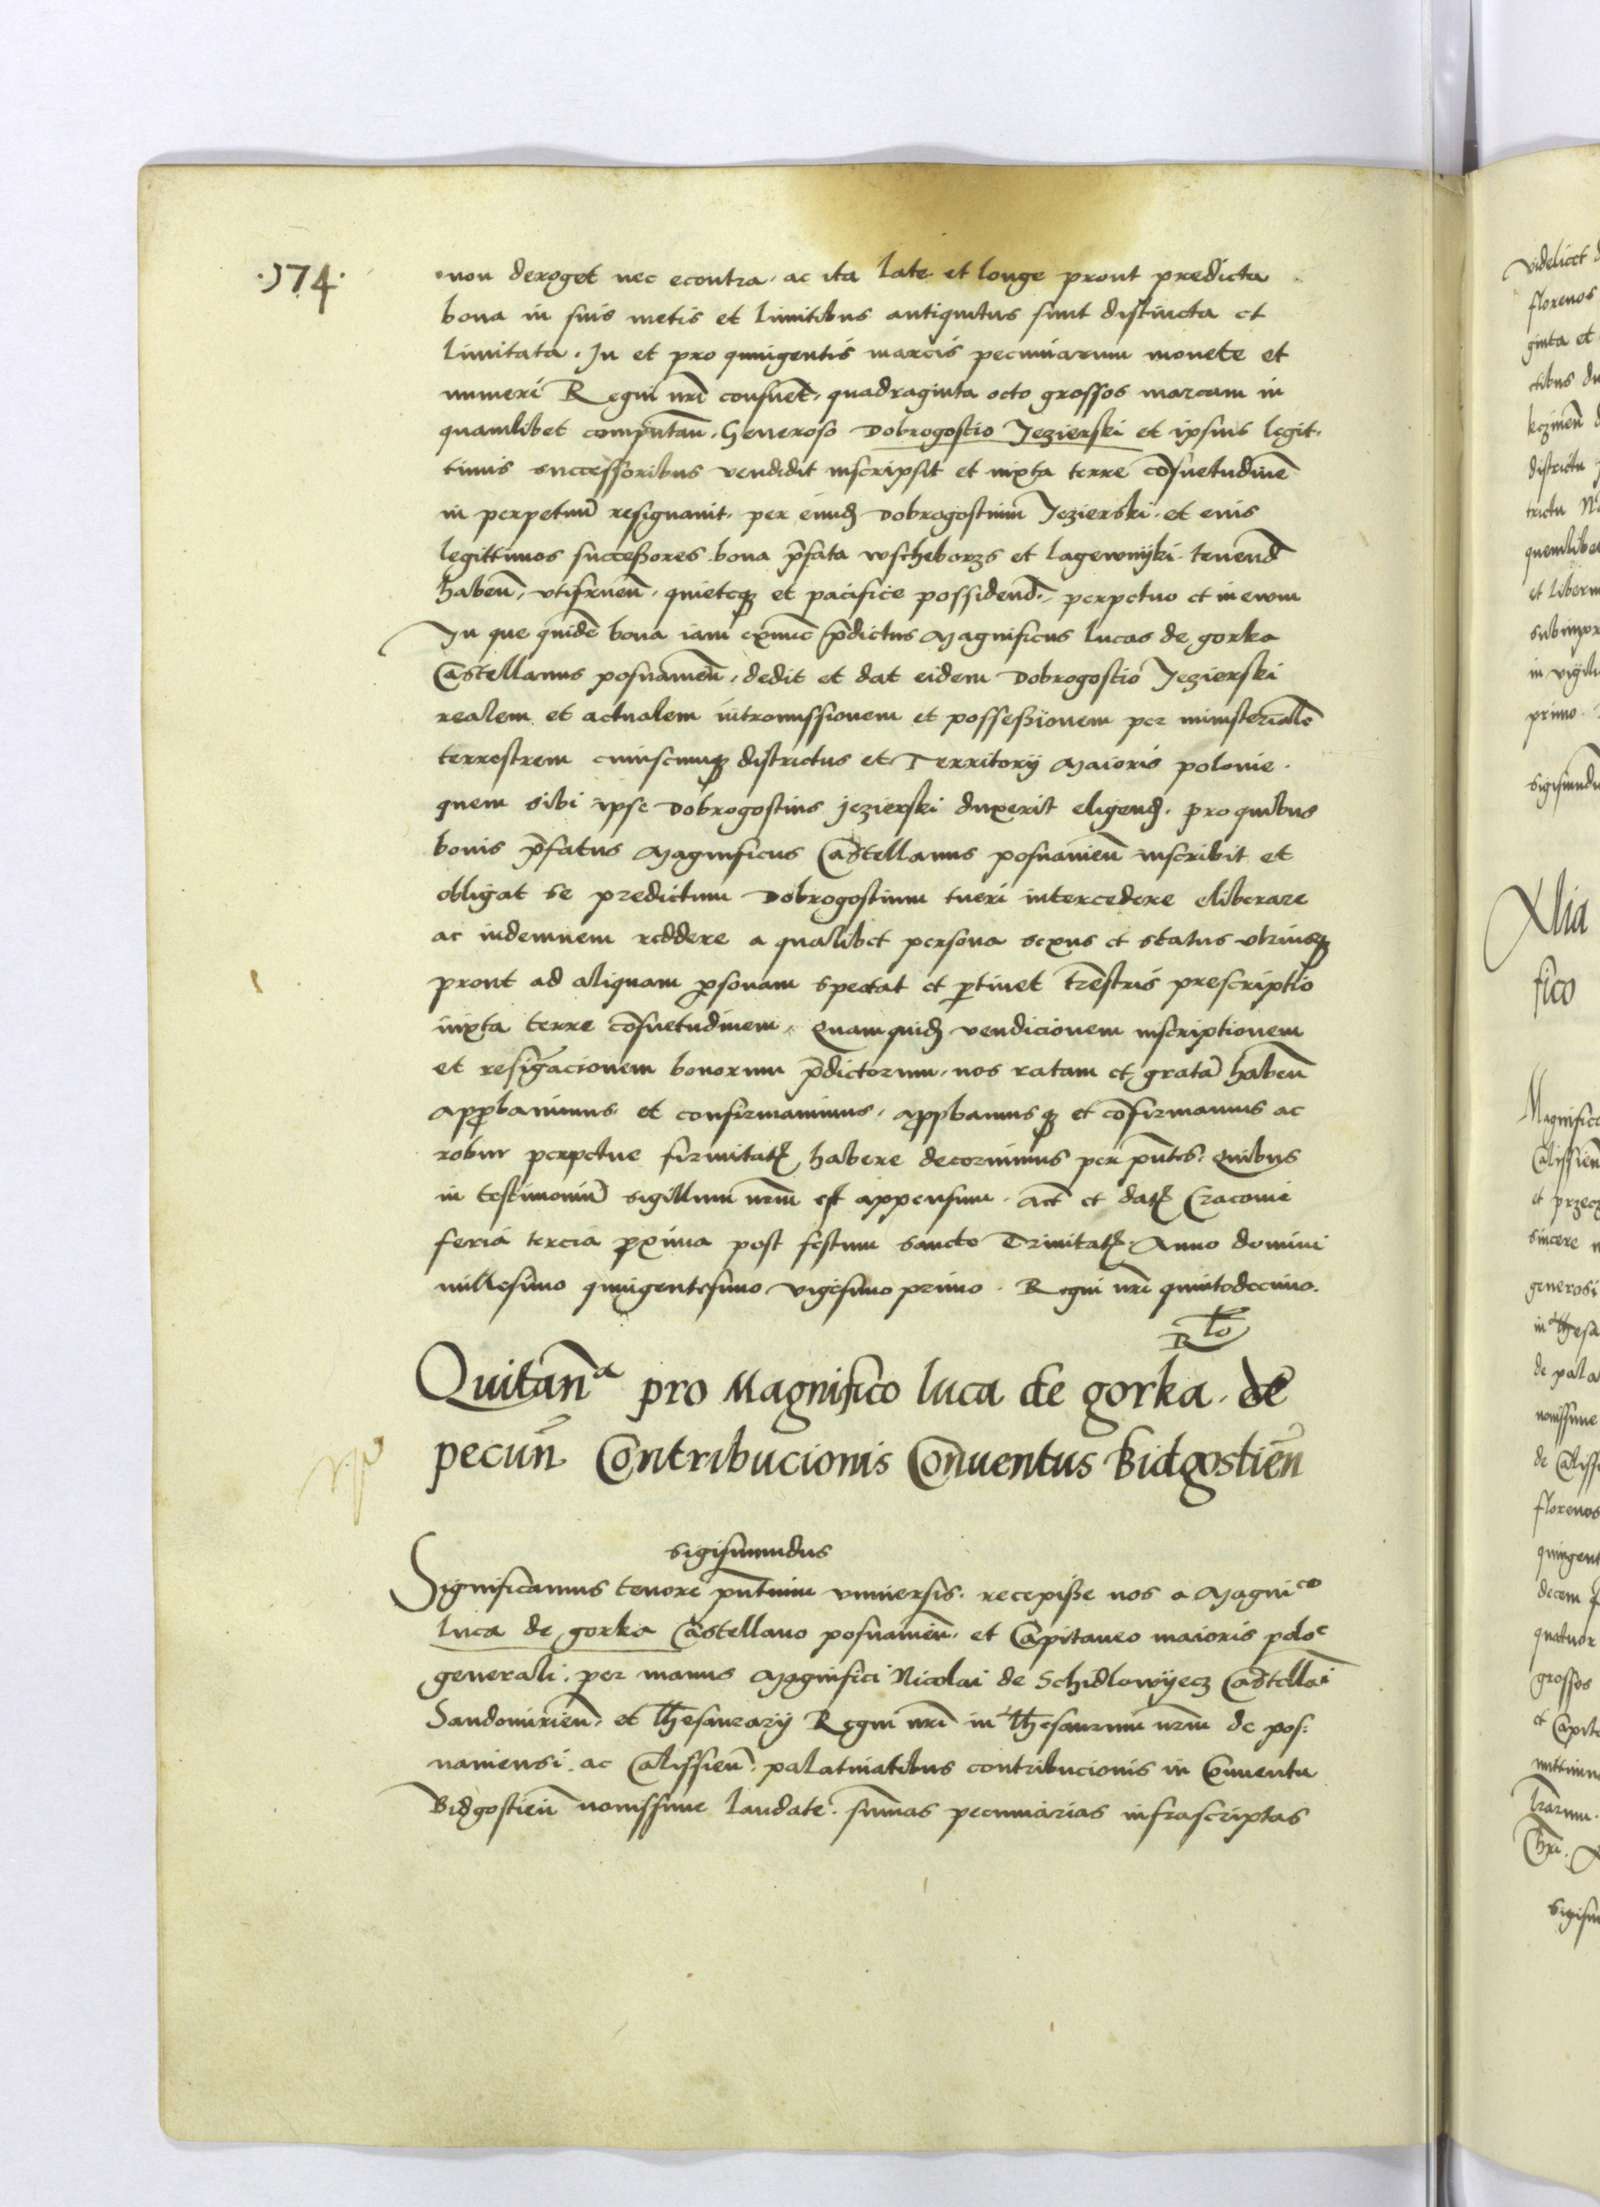 ·174·
non deroget nec econtra· ac ita late et longe prout predicta
bona in suis metis et limitibus antiquitus sunt distincta et
limitata· In et pro quingentis marcis pecuniarum monete et
numeri Regni nr̄i consuet̄· quadraginta octo grossos marcam in
quamlibet computan̄· Generoso Dobrogostio Jezierski et ipsius legit·
timis successoribus vendidit inscripsit et iuxta terre cōsuetudinē
in perpetuū resignauit· per eiusdꝫ Dobrogostium Jezierski· et euis
legittimos successores bona p̄fata wscheborzs et lagewnijki· tenend̄
haben̄· vtifruen̄· quieteqꝫ et pacifice possidend̄· perpetuo et in ewm
In que quidē bona iam exnunc p̄dictus Magnificus lucas de gorka
Castellanus posnanien̄· dedit et dat eidem Dobrogostio Jezierski
realem et actualem intromissionem et possessionem per ministerialē
terrestrem cuiuscunqꝫ districtus et Territorij Maioris polonie·
quem sibi ipse Dobrogostius jezierski duxerit eligendꝫ· pro quibus
bonis p̄fatus Magnificus Castellanus posnanien̄ inscribit et
obligat se predictum Dobrogostium tueri intercedere eliberare
ac indemnem reddere a qualibet persona sexus et status vtriusqꝫ
prout ad aliquam ꝑsonam spectat et ꝑtinet tr̄estris prescriptio
iuxta terre cōsuetudinem· Quamquidꝫ vendicionem inscriptionem
et resignacionem bonorum p̄dictorum· nos ratam et gratā haben̄
approbauimus et confirmauimus· approbamusqꝫ et cōfirmamus ac
robur perpetue firmitatꝭ habere decernimus per pn̄tes· Quibus
in testimoniū sigillum nr̄m est appensum· act̄ et datꝭ Cracouie
feria tercia proxima post festum sancte Trinitatꝭ· Anno domini
millesimo quingentesimo vigesimo primo· Regni nr̄i quintodecimo·
Rᵗᵒ
Quitanᵃ pro Magnifico luca de gorka· de
pecun̄ Contribucionis Conuentus Bidgostien̄
sigismundus
Significamus tenore pn̄tium vniuersis· recepisse nos a Magniᶜᵒ
luca de gorka Castellano posnanien̄· et Capitaneo maioris poloᵉ
generali· per manus Magnifici Nicolai de Schidlowijecz Castellāi
Sandomirien̄· et Thesaurarij Regni nr̄i in Thesaurum nr̄m de pos:
naniensi· ac Calissien̄· palatinatibus contribucionis in Conuentu
Bidgostien̄ nouissime laudate· sum̄as pecuniarias infrascriptas